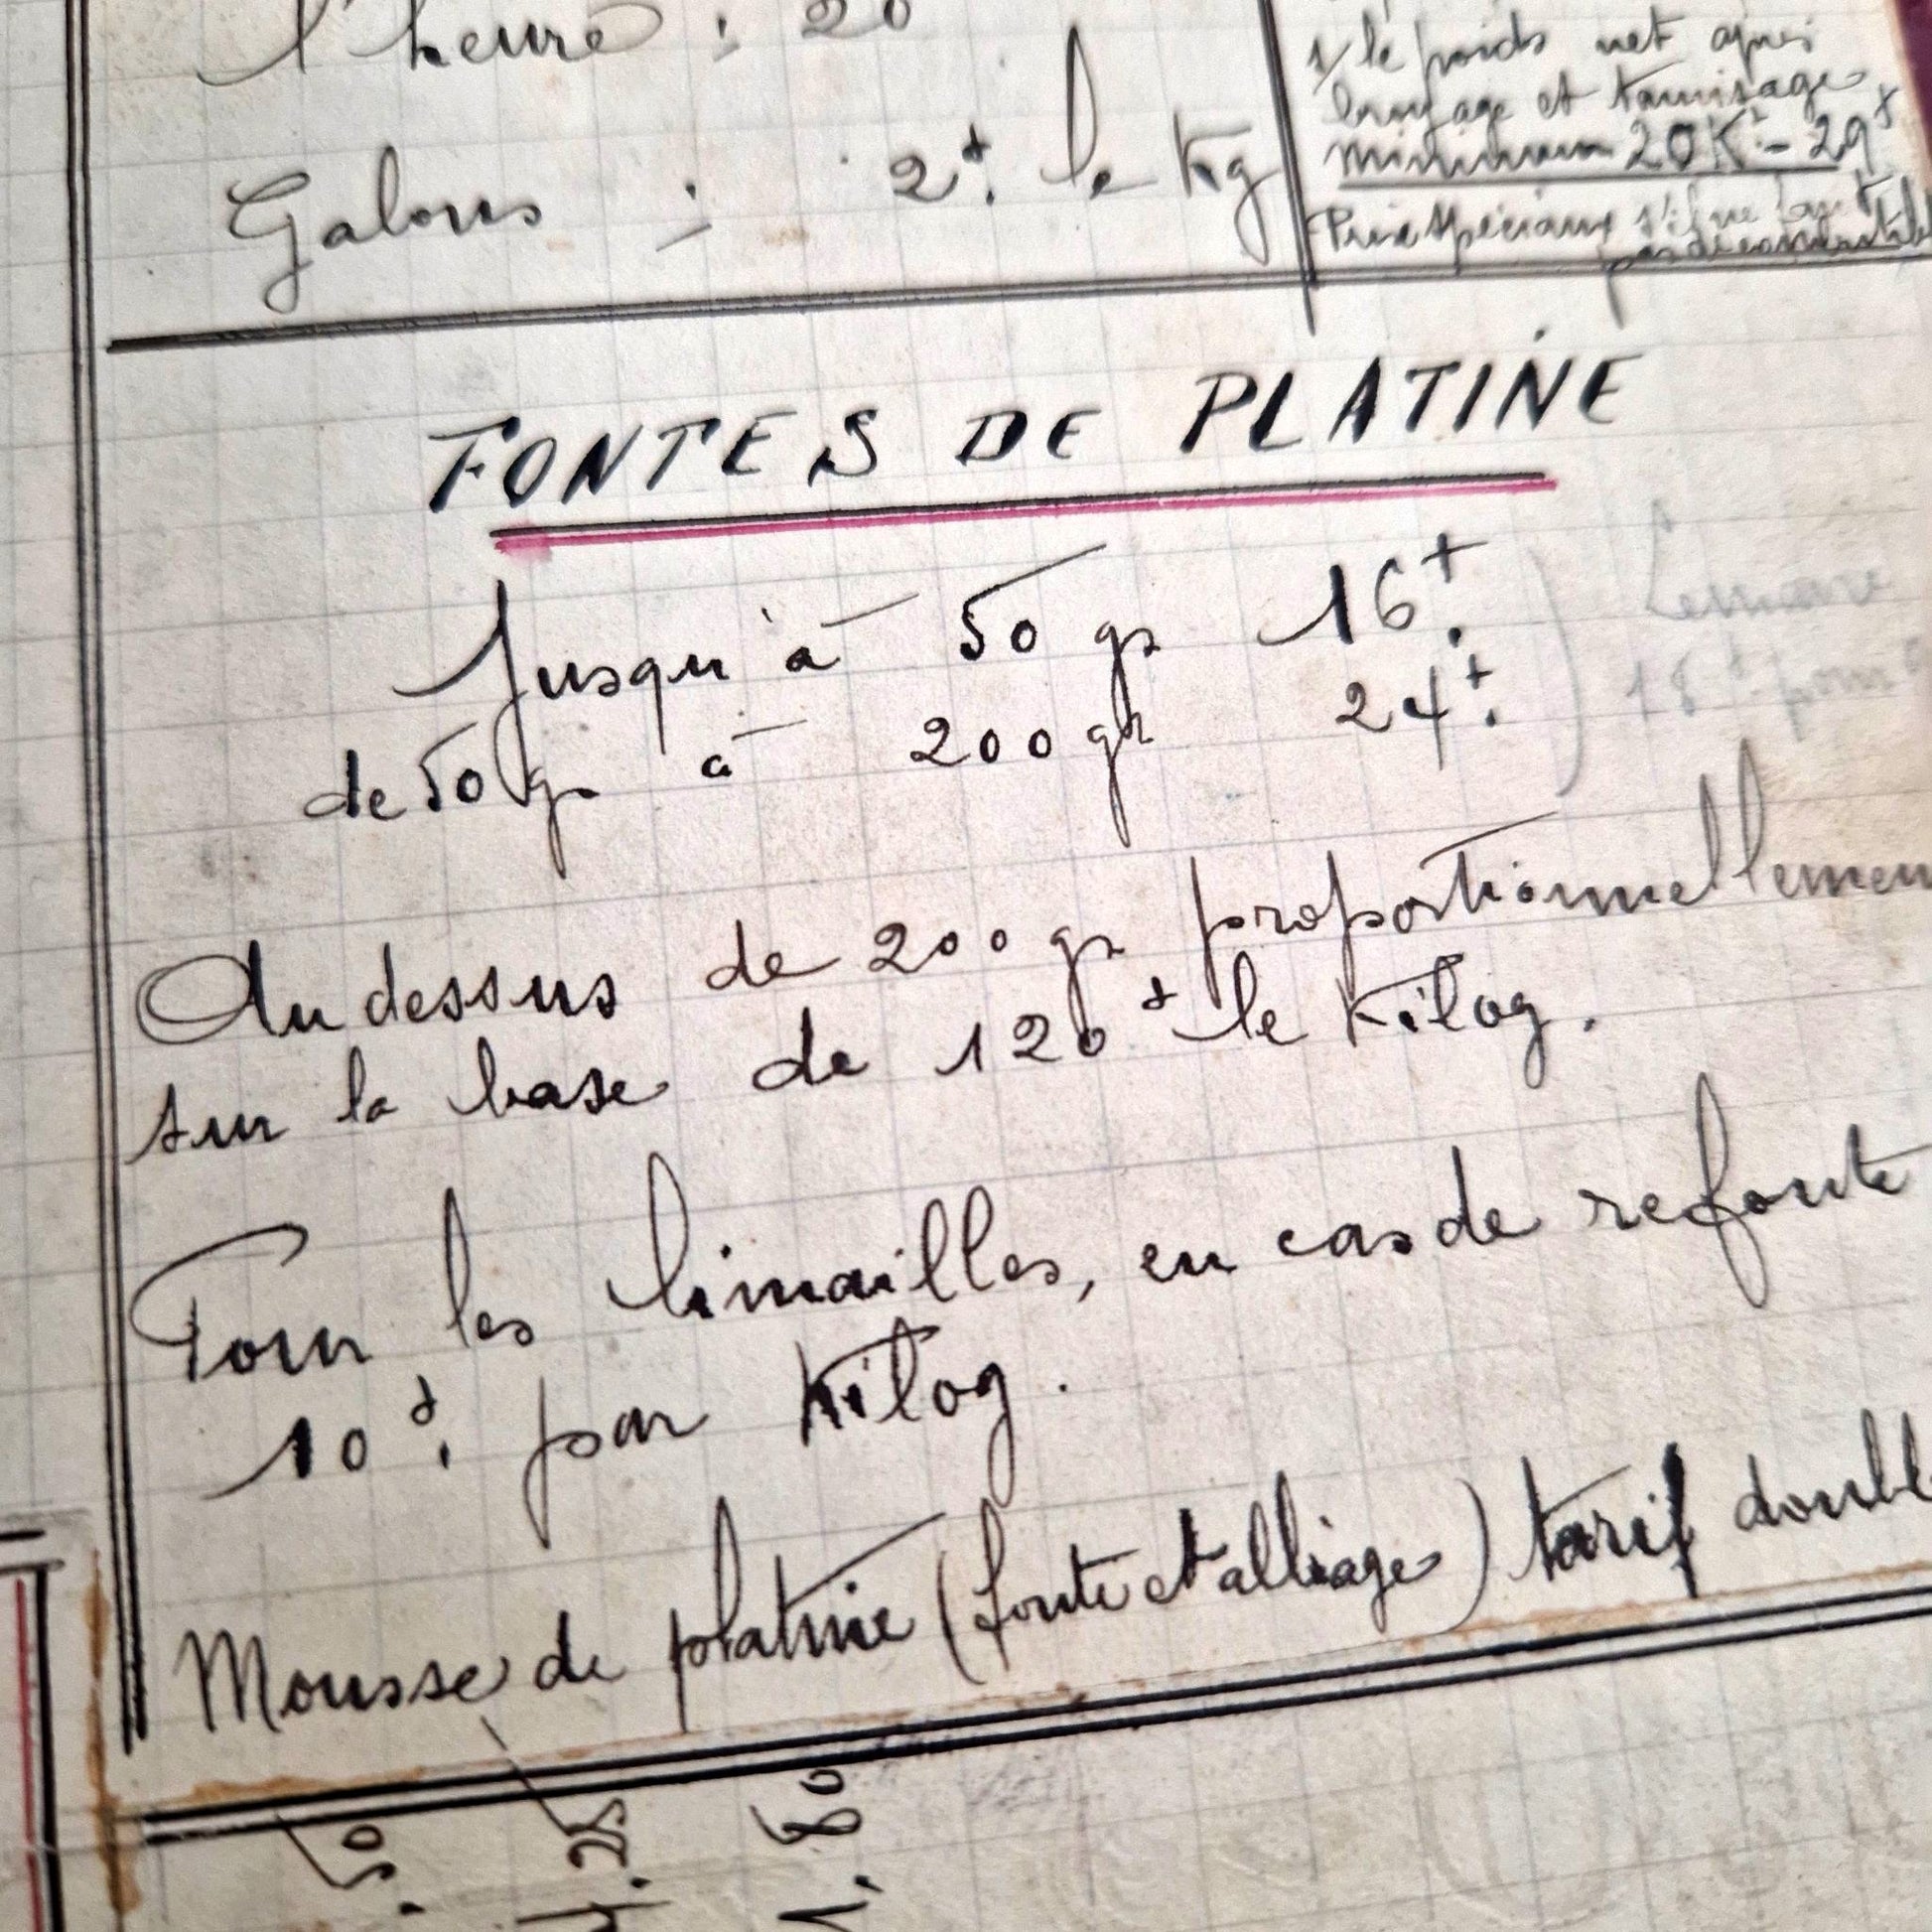 l'heure : 20
Galons : 2f. le Kg
s/ le poids net après
broyage et tamisage
minimum 20K° - 29f
Prix spéciaux s'il ne faut
FONTES DE PLATINE
Jusqu'à 50 gr 16f.
de 50 gr à 200 gr 24f.
Lemaire
18f pour
Au dessus de 200 gr proportionnellemen
sur la base de 120f le Kilog.
Pour les limailles, en cas de refonte
10f. par Kilog.
Mousse de platine (fonte et alliage) tarif doubl
50
.25
1,80